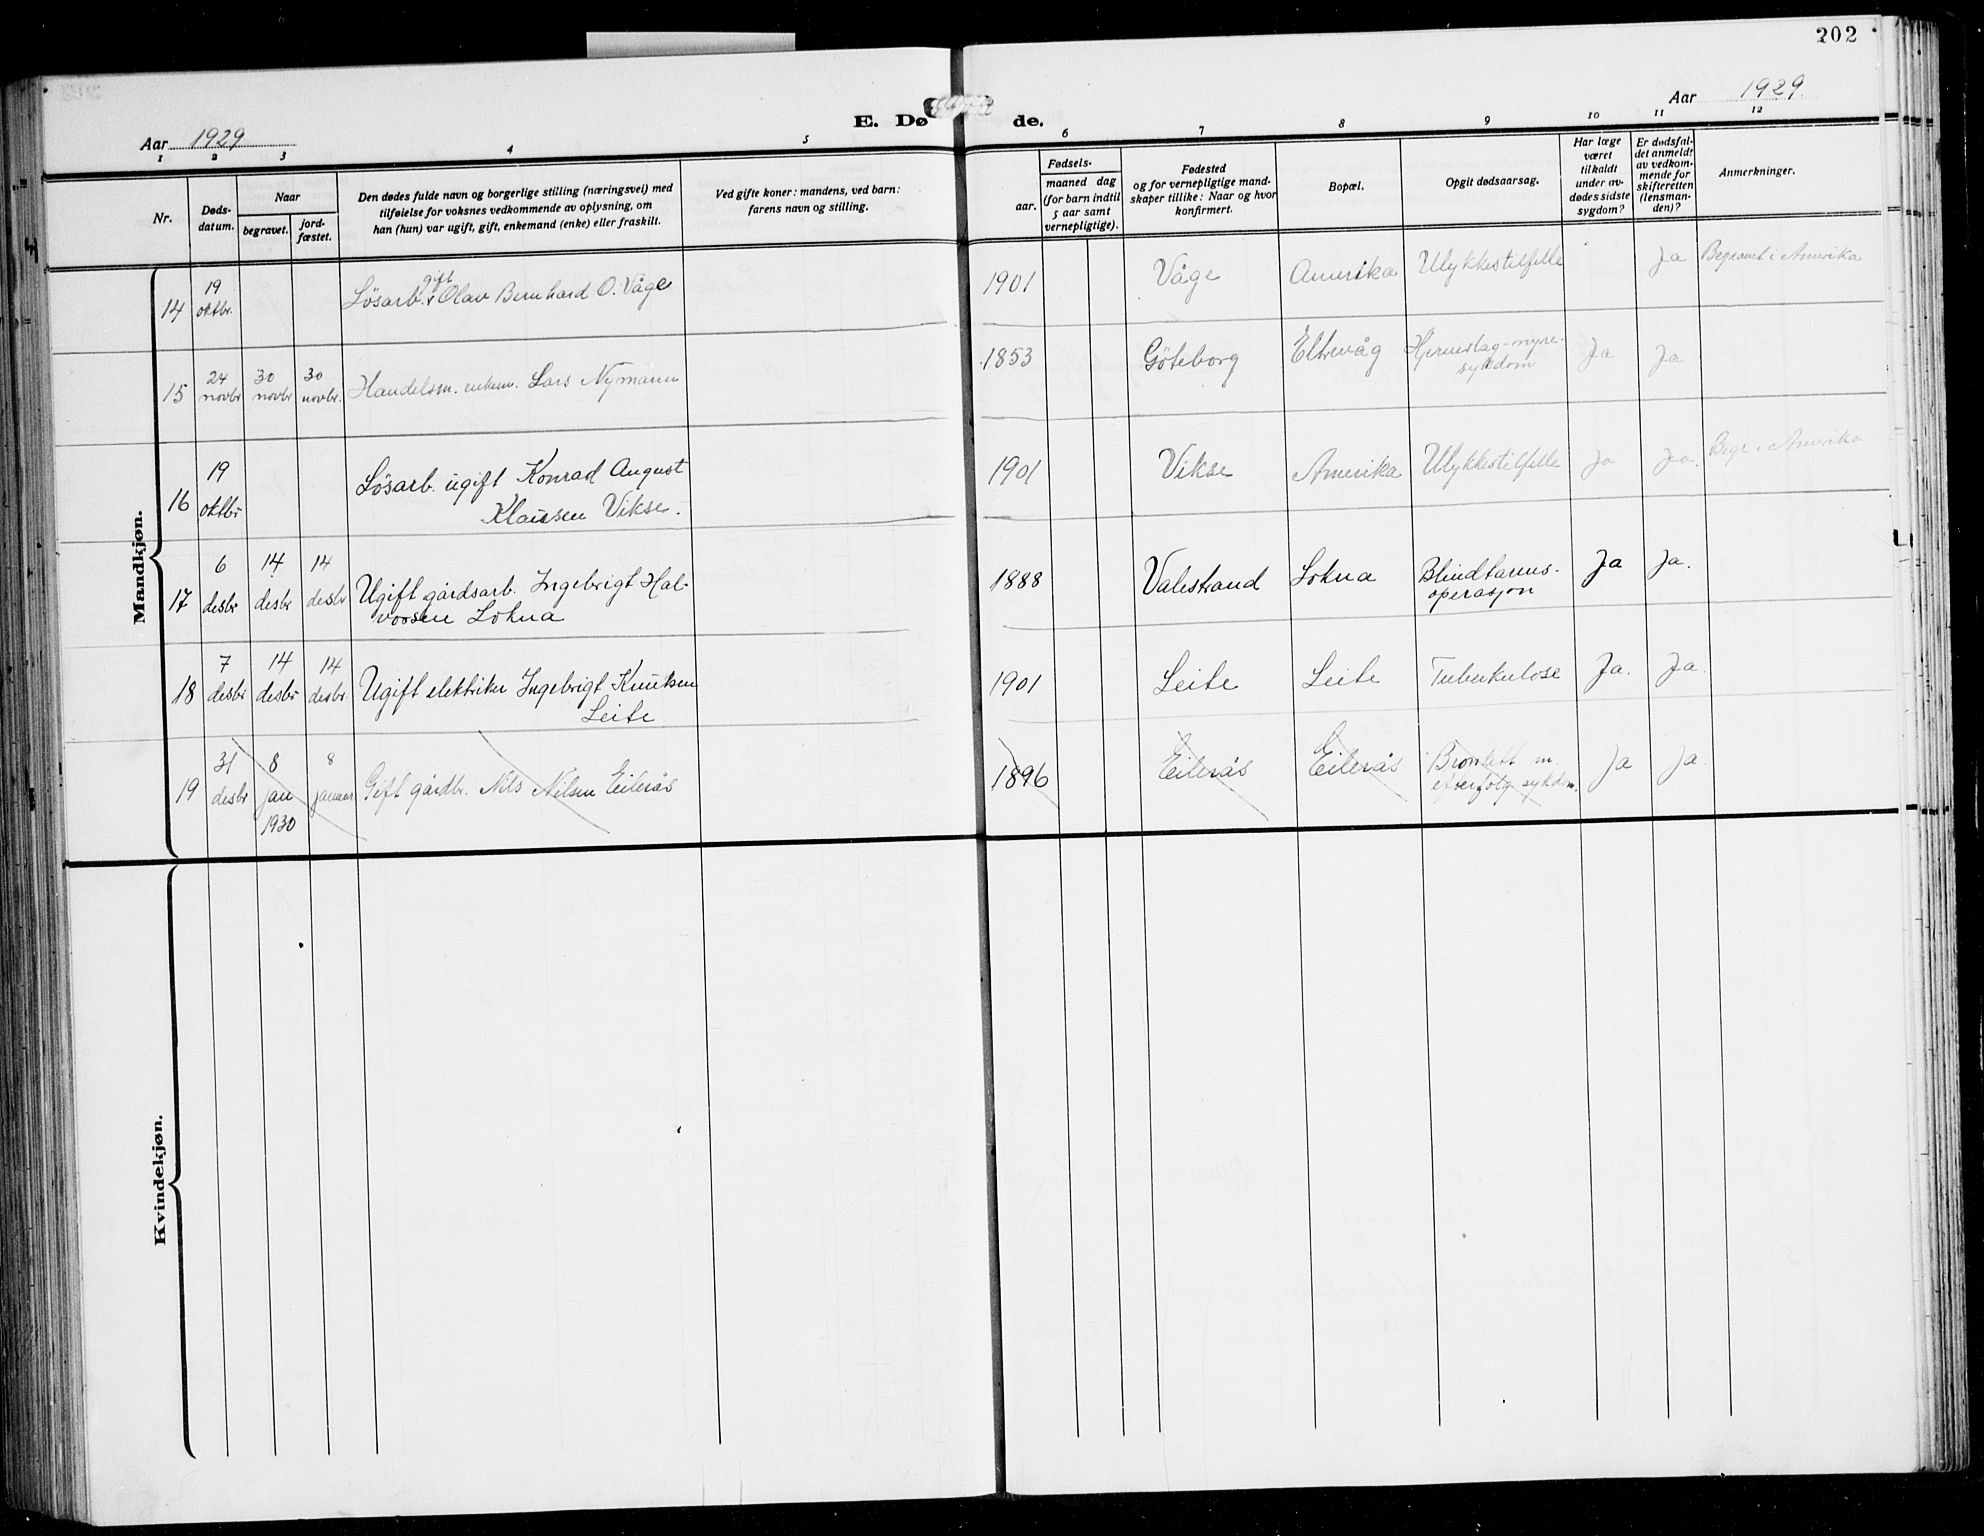 202
Aar 1929
E. Døde.
Aar 1929.
1 2 3 4 5 6 7 8 9 10 11 12
Nr.
Døds-
datum.
Naar
begravet.
jord-
fæstet.
Den dødes fulde navn og borgerlige stilling (næringsvei) med
tilføielse for voksnes vedkommende av oplysning, om
han (hun) var ugift, gift, enkemand (enke) eller fraskilt.
Ved gifte koner: mandens, ved barn:
farens navn og stilling.
Fødsels-
aar.
maaned dag
(for barn indtil
5 aar samt
vernepligtige).
Fødested
og for vernepligtige mand-
skaper tillike: Naar og hvor
konfirmert.
Bopæl.
Opgit dødsaarsag.
Har læge
været
tilkaldt
under av-
dødes sidste
sygdom?
Er dødsfal-
det anmeldt
av vedkom-
mende for
skifteretten
(lensman-
den)?
Anmerkninger.
Mandkjøn.
14 19 oktbr. Løsarb. gift Olav Bernhard O. Våge 1901 Våge Amerika Ulykkestilfelle Ja Begravet i Amerika
15 24 novbr 30 novbr 30 novbr. Handelsm. enkem. Lars Nymann 1853 Göteborg Eltrevåg Hjerneslag-nyre-
sykdom Ja Ja
16 19 oktbr Løsarb. ugift Konrad August
Klausen Vikse. 1901 Vikse Amerika Ulykkestilfelle Ja Ja. Begr. i Amerika
17 6 desbr 14 desbr 14 desbr Ugift gårdsarb. Ingebrigt Hal-
vorsen Lokna 1888 Valestrand Lokna Blindtarms-
operasjon Ja Ja.
18 7 desbr 14 desbr 14 desbr. Ugift elektriker Ingebrigt Knutsen
Leite 1901 Leite Leite Tuberkulose Ja. Ja.
19 31 desbr 8 jan 1930 8 januar Gift gårdbr. Nils Nilsen Eilerås 1896 Eilerås Eilerås Bronkitt m.
efterfølg sykdom. Ja Ja.
Kvindekjøn.